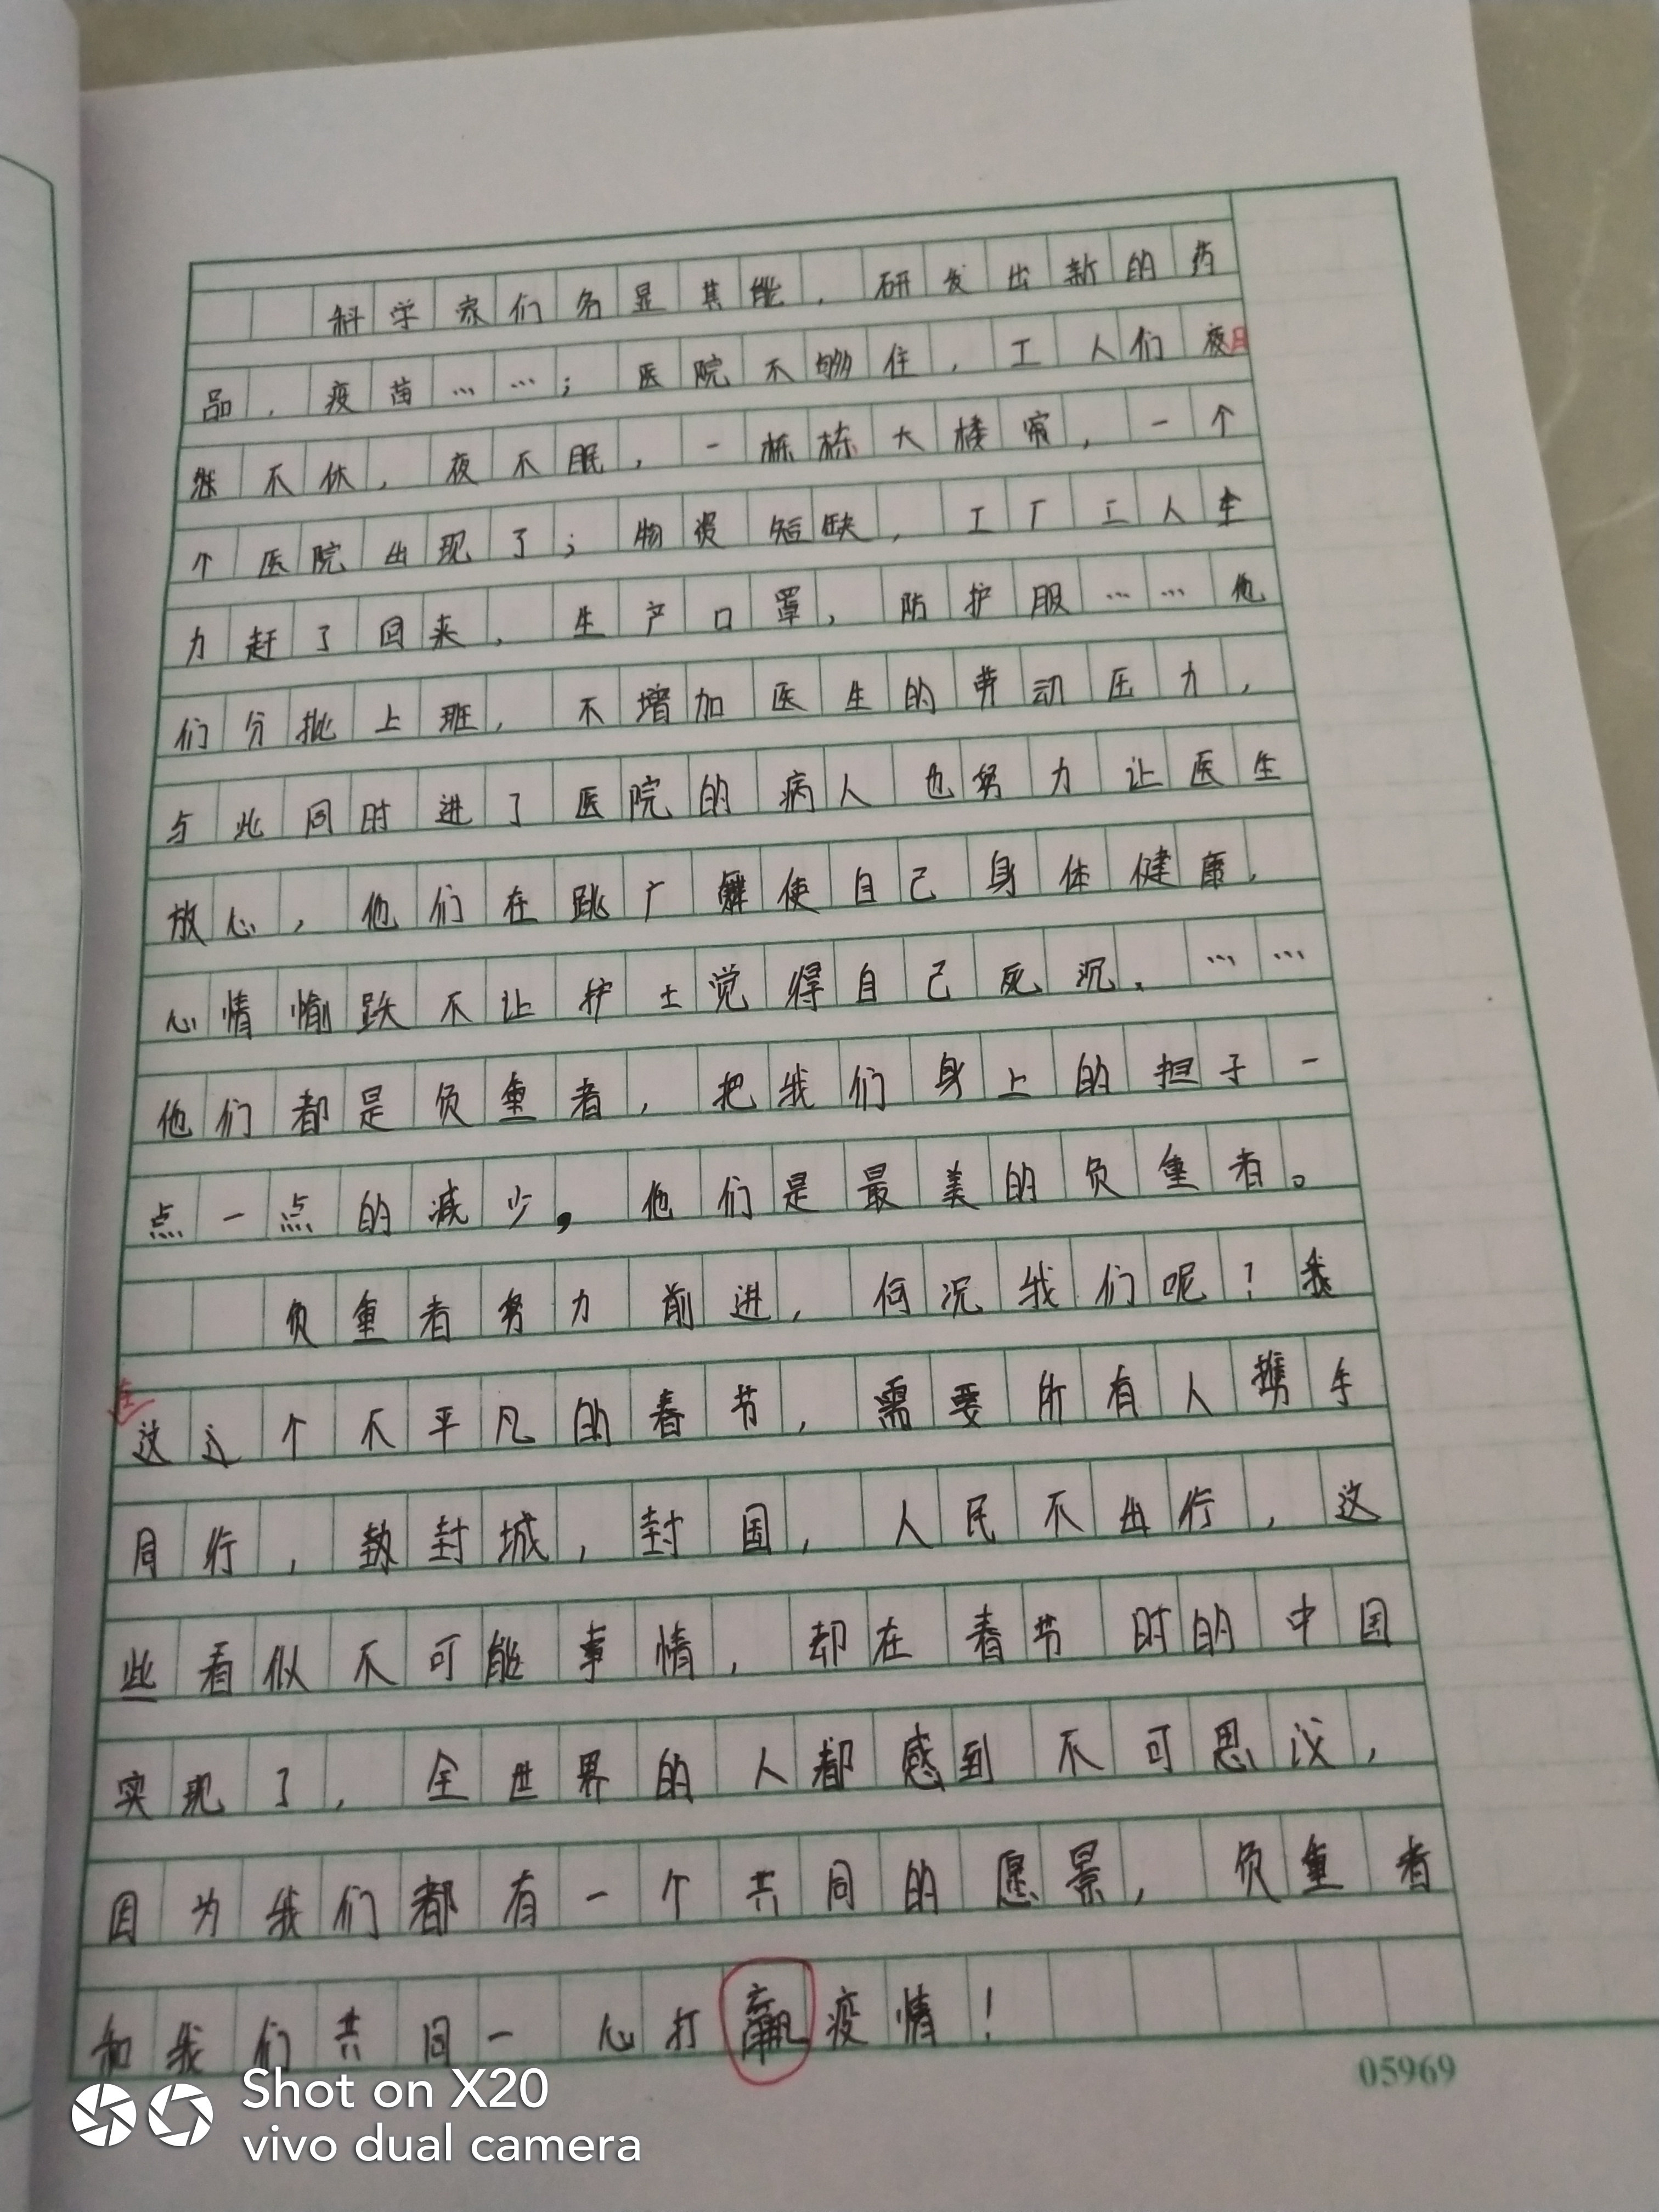 科学家们各显其能，研发出新的药
品，疫苗……；医院不够住，工人们夜日
继不休，夜不眠，一栋栋大楼常，一个
个医院出现了；物资短缺，工厂工人全
力赶了回来，生产口罩，防护服……他
们分批上班，不增加医生的劳动压力，
与此同时进了医院的病人也努力让医生
放心，他们在跳广舞使自己身体健康，
心情愉跌不让护士觉得自己死沉，……
他们都是负重者，把我们身上的担子一
点一点的减少，他们是最美的负重者。
负重者努力前进，何况我们呢！我
在
这这个不平凡的春节，需要所有人携手
同行，封城，封国，人民不出行，这
些看似不可能事情，却在春节时的中国
实现了，全世界的人都感到不可思议，
因为我们都有一个共同的愿景，负重者
和我们共同一心打赢疫情！
05969
Shot on X20
vivo dual camera